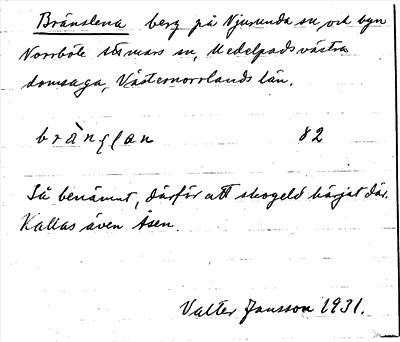 Bränslena berg på Njurunda sn, och byn
Norrböle Stömars sn, Medelpads västra
domsaga, Västernorrlands län.
brànslan 82
Så benämnt, därför att skogeld härjat där.
Kallas även Åsen.
Valter Jansson 1931.